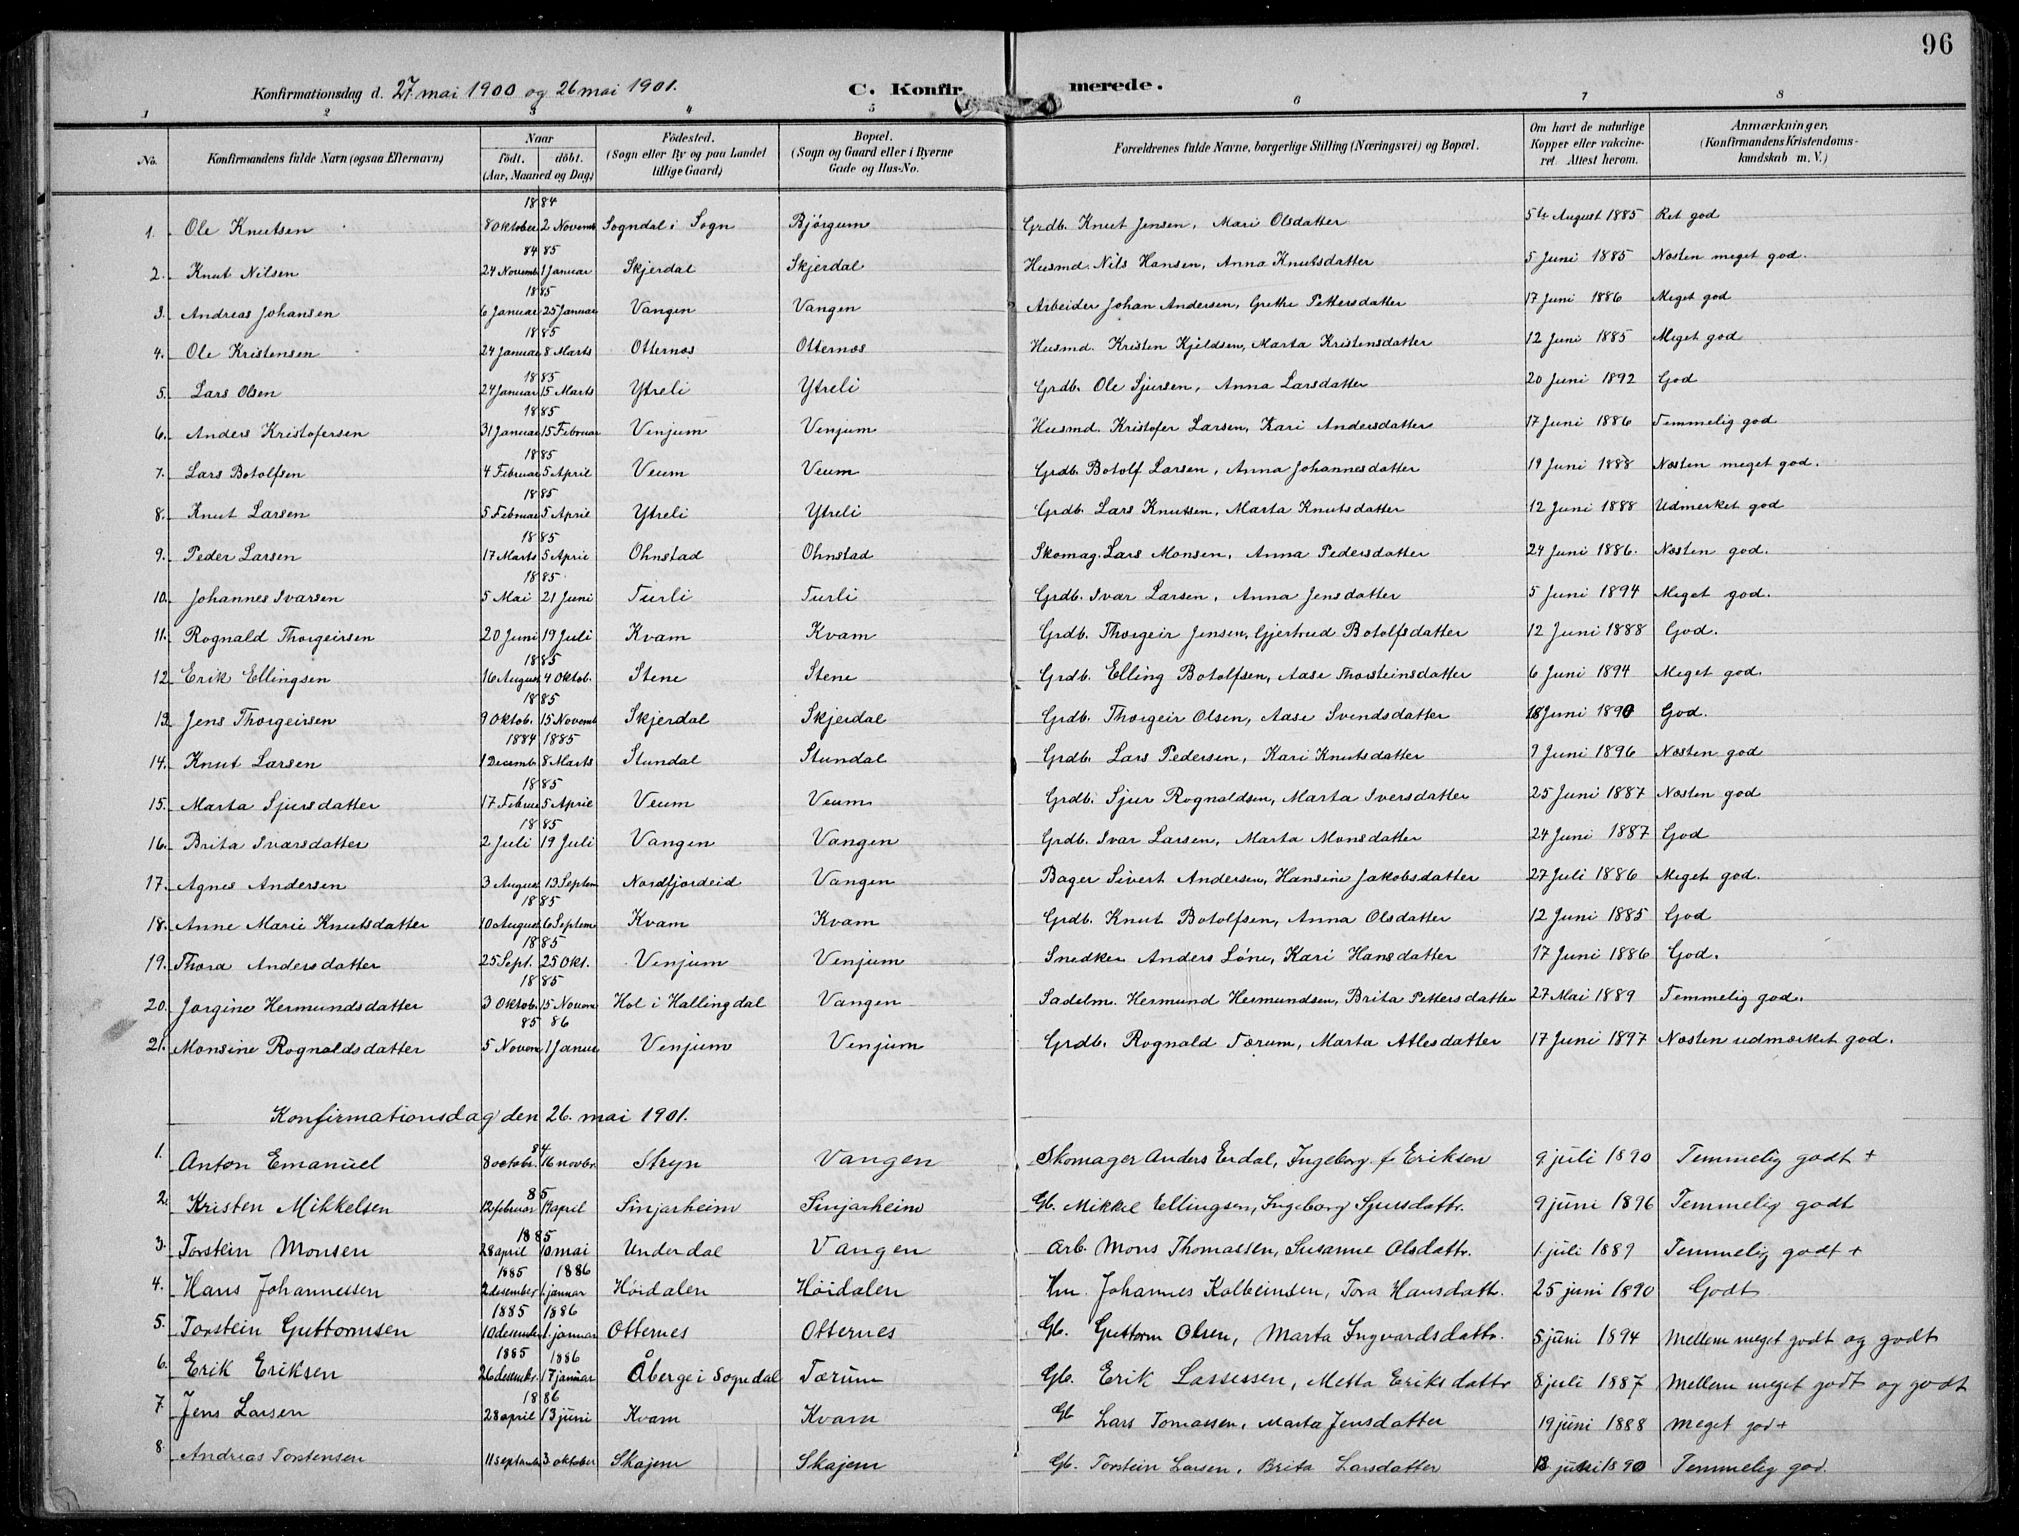 96
Konfirmationsdag d. 27 mai 1900 og 26 mai 1901. C. Konfirmerede.
1 2 3 4 5 6 7 8
No. Konfirmandens fulde Navn (ogsaa Efternavn) Naar födt. döbt. (Aar, Maaned og Dag) Födested. (Sogn eller By og paa Landet tillige Gaard) Bopæl. (Sogn og Gaard eller i Byerne Gade og Hus-No. Forældrenes fulde Navne, borgerlige Stilling (Næringsvei) og Bopæl. Om havt de naturlige Kopper eller vakcineret. Attest herom. Anmærkninger, (Konfirmandens Kristendomskundskab m. V.)
1884
1. Ole Knutsen 8 Oktober 2 Novemb Sogndal i Sogn Bjørgum Grdb. Knut Jensen, Mari Olsdatter 5te August 1885 Ret god
84 85
2. Knut Nilsen 24 Novemb 1 Januar Skjerdal Skjerdal Husmd. Nils Hansen, Anna Knutsdatter 5 Juni 1885 Næsten meget god.
1885
3. Andreas Johansen 6 Januar 25 Januar Vangen Vangen Arbeider Johan Andersen, Grethe Pettersdatter 17 Juni 1886 Meget god
1885
4. Ole Kristensen 24 Januar 8 Marts Otternæs Otternæs Husmd. Kristen Kjeldsen, Marta Kristensdatter 12 Juni 1885 Meget god
1885
5. Lars Olsen 24 Januar 15 Marts Ytreli Ytreli Grdb. Ole Sjursen, Anna Larsdatter 20 Juni 1892 God
1885
6. Anders Kristofersen 31 Januar 15 Februar Venjum Venjum Husmd. Kristofer Larsen, Kari Andersdatter 17 Juni 1886 Temmelig god
1885
7. Lars Botolfsen 4 Februar 5 April Veum Veum Grdb. Botolf Larsen, Anna Johannesdatter 19 Juni 1888 Næsten meget god.
1885
8. Knut Larsen 5 Februar 5 April Ytreli Ytreli Grdb. Lars Knutsen, Marta Knutsdatter 12 Juni 1888 Udmerket god
1885
9. Peder Larsen 17 Marts 5 April Ohnstad Ohnstad Skomag. Lars Monsen, Anna Pedersdatter 24 Juni 1886. Næsten god.
1885
10. Johannes Ivarsen 5 Mai 21 Juni Turli Turli Grdb. Ivar Larsen, Anna Jensdatter 5 Juni 1894 Meget god.
11. Rognald Thorgeirsen 20 Juni 19 Juli Kvam Kvam Grdb. Thorgeir Jensen, Gjertrud Botolfsdatter 12 Juni 1888 God.
1885
12. Erik Ellingsen 16 August 4 Oktob. Stene Stene Grdb. Elling Botolfsen, Aase Thorsteinsdatter 6 Juni 1894 Meget god.
1885
13. Jens Thorgeirsen 9 Oktob. 15 Novemb Skjerdal Skjerdal Grdb. Thorgeir Olsen, Aase Svendsdatter 18 Juni 1890 God.
1884 1885
14. Knut Larsen 1 Decemb. 8 Marts Stundal Stundal Grdb. Lars Pedersen, Kari Knutsdatter 9 Juni 1896 Næsten god
1885
15. Marta Sjursdatter 17 Februa 5 April Veum Veum Grdb. Sjur Rognaldsen, Marta Iversdatter 25 Juni 1887 Næsten god
1885
16. Brita Ivarsdatter 2 Juli 19 Juli Vangen Vangen Grdb. Ivar Larsen, Marta Monsdatter 24 Juni 1887 God
17. Agnes Andersen 3 August 13 Septem Nordfjordeid Vangen Bager Sivert Andersen, Hansine Jakobsdatter 27 Juli 1886 Meget god.
1885
18. Anne Marie Knutsdatter 10 August 6 Septem Kvam Kvam Grdb. Knut Botolfsen, Anna Olsdatter 12 Juni 1885 God
1885
19. Thora Andersdatter 25 Sept. 25 Okt. Venjum Venjum Snedker Anders Løne, Kari Hansdatter 17 Juni 1886 God.
1885
20. Jorgine Hermundsdatter 3 Oktob. 15 Novem Hol i Hallingdal Vangen Sadelm. Hermund Hermundsen, Brita Pettersdatter 27 Mai 1889 Temmelig god.
85 86
21. Monsine Rognaldsdatter 5 Novem 1 Januar Venjum Venjum Grdb. Rognald Tærum, Marta Atlesdatter 17 Juni 1897 Næsten udmærket god.
Konfirmationsdag den 26. mai 1901.
84
1. Anton Emanuel 8 octobr. 16 novbr. Stryn Vangen Skomager Anders Erdal, Ingeborg f Eriksen 9 juli 1890 Temmelig godt +
85
2. Kristen Mikkelsen 12 februar 19 april Sinjarheim Sinjarheim Gb. Mikkel Ellingsen, Ingeborg Sjursdattr. 9 juni 1896 Temmelig godt
1885
3. Torstein Monsen 28 april 10 mai Underdal Vangen Arb. Mons Thomassen, Susanne Olsdattr. 1. juli 1889 Temmelig godt +
1885 1886
4. Hans Johannessen 2 desember 1. januar Høidalen Høidalen Hm. Johannes Kolbeinsen, Tora Hansdattr. 25 juni 1890 Godt
1885 1886
5. Torstein Guttormsen 10 desember 1. januar Otternes Otternes Gb. Guttorm Olsen, Marta Ingvardsdattr. 5 juni 1894 Mellem meget godt og godt
1885 1886
6. Erik Eriksen 26 desembr. 17 januar Åberge i Sogndal Tærum Gb. Erik Lassessen, Metta Eriksdattr 8 juli 1887 Mellem meget godt og godt
1886
7. Jens Larsen 28 april 13 juni Kvam Kvam Gb Lars Tomassen, Marta Jensdatter 19 juni 1888 Meget godt
8. Andreas Torstensen 11 septembr 3 oktober Skajem Skajem Gb. Torstein Larsen, Brita Larsdatter 18 juni 1890 Temmelig god.